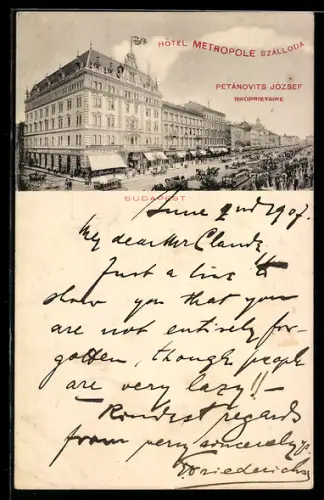 HÔTEL METROPOLE SZÁLLODA
PETÁNOVITS JÓZSEF
PROPRIETAIRE
BUDAPEST
June 2nd 1907.
My dear Mr Claude
Just a line to
show you that you
are not entirely for-
gotten, though people
are very lazy!! –
Kindest regards
from very sincerely yrs.
Friederichs